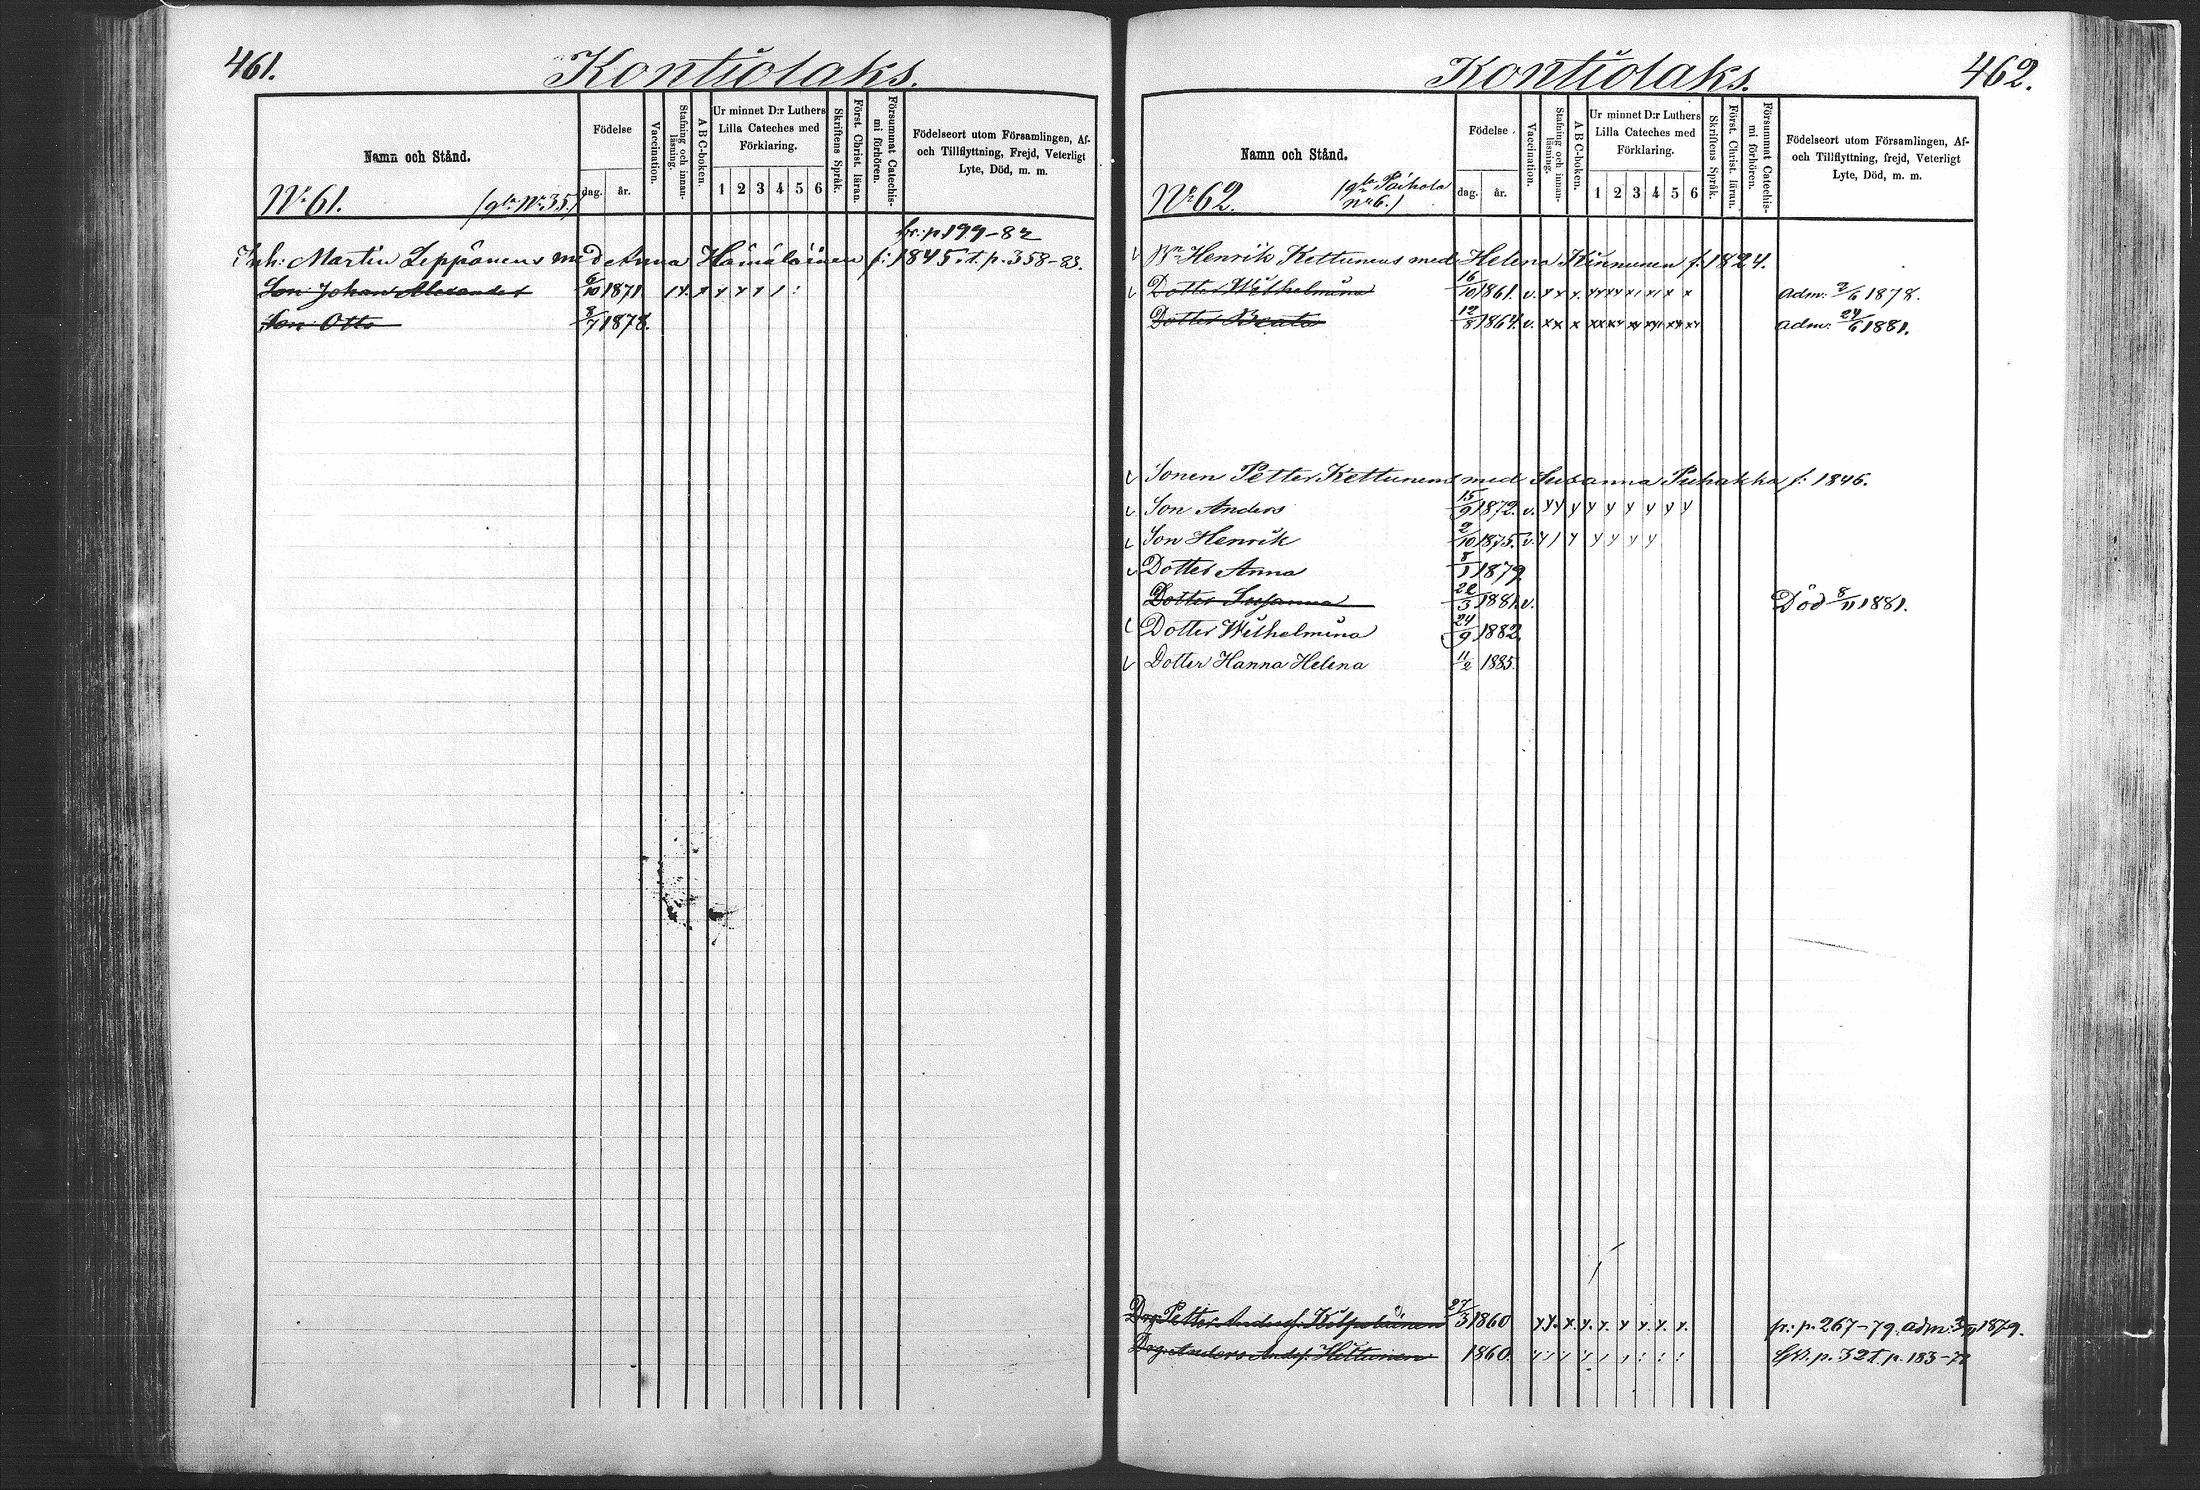 461.
Kontiolaks.
Namn och Stånd.
Födelse
dag.
år.
Vaccination.
Stafning och innan-
läsning.
A B C-boken.
Ur minnet D:r Luthers
Lilla Cateches med
Förklaring.
1 2 3 4 5 6
Skriftens Språk.
Först. Christ. läran.
Försummat Catechis-
mi förhören.
Födelseort utom Församlingen, Af-
och Tillflyttning, Frejd, Veterligt
Lyte, Död, m. m.
No 61. (gla No 35.)
br: p. 199-82
Inh: Martin Leppänens med Anna Hämäläinen f: 1845 it. p. 358-83.
Son Johan Alexander 6/10 1871
Son Otto 8/7 1878.
462.
Kontiolaks.
Namn och Stånd.
Födelse
dag.
år.
Vaccination.
Stafning och innan-
läsning.
A B C-boken.
Ur minnet D:r Luthers
Lilla Cateches med
Förklaring.
1 2 3 4 5 6
Skriftens Språk.
Först. Christ. läran.
Försummat Catechis-
mi förhören.
Födelseort utom Församlingen, Af-
och Tillflyttning, frejd, Veterligt
Lyte, Död, m. m.
No 62. (gla Paihola
No 6.)
Bn Henrik Kettunens med Helena Kinnunen f: 1824.
Dotter Wilhelmina 16/10 1861. v. adm: 2/6 1878.
Dotter Beata 12/8 1864. v. adm: 24/6 1881.
Sonen Petter Kettunens med Susanna Puhakka f: 1846.
Son Anders 15/9 1872. v.
Son Henrik 2/10 1875. v.
Dotter Anna 8/1 1879
Dotter Susanna 22/3 1881. v. Död 8/11 1881.
Dotter Wilhelmina 24/9 1882
Dotter Hanna Helena 11/2 1885.
Drg Petter Andersf. Kilpeläinen 27/3 1860 fr: p. 267-79. adm: 1879.
Drg: Anders Andsf. Hiltunen 1860. p. 32 t. p. 183-78